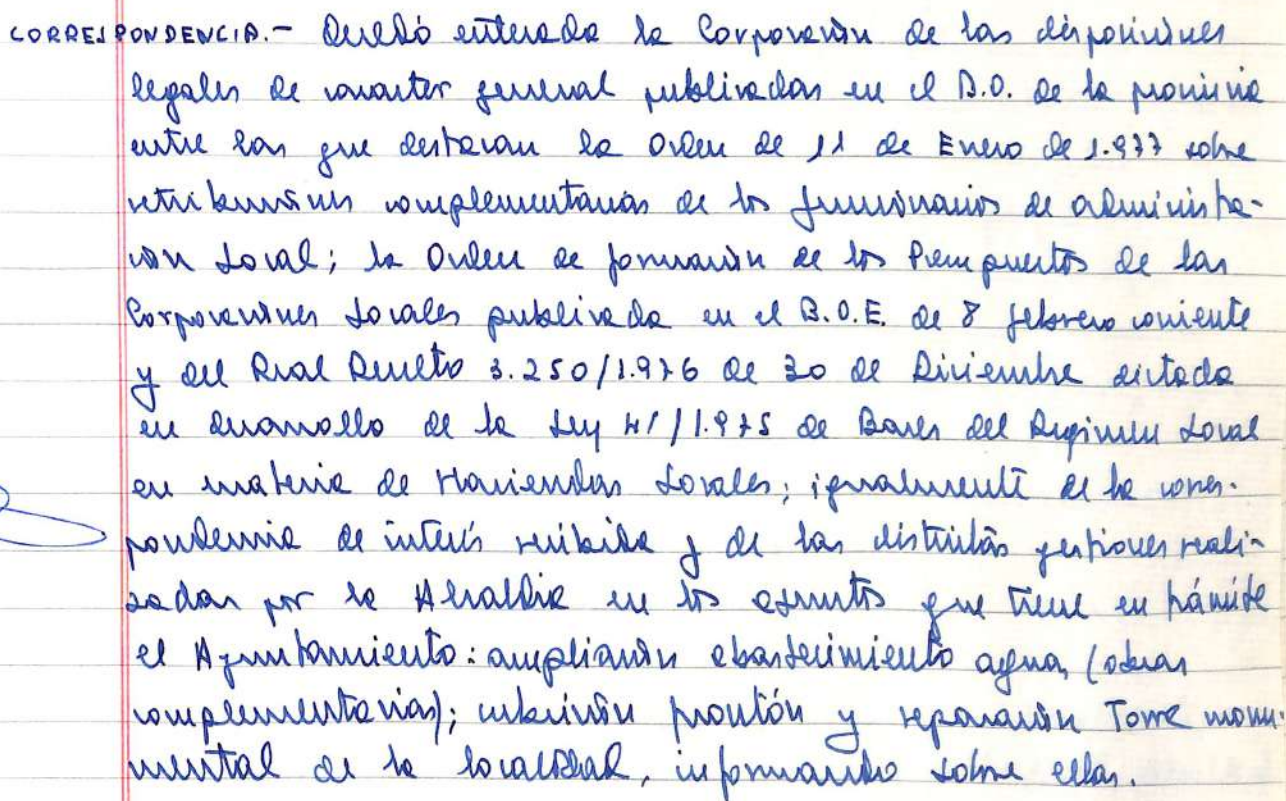 CORRESPONDENCIA.- Quedó enterada la Corporación de las disposiciones
legales de caracter general publicadas en el B.O. de la provincia
entre las que destacan la Orden de 11 de Enero de 1.977 sobre
retribuciones complementarias de los funcionarios de administra-
ción Local; la Orden de formación de los Presupuestos de las
Corporaciones Locales publicada en el B.O.E. de 8 febrero corriente
y del Real Decreto 3.250/1.976 de 30 de Diciembre dictada
en desarrollo de la Ley 41/1.975 de Bases del Regimen Local
en materia de Haciendas Locales; igualmente de la corres-
pondencia de interés recibida y de las distintas gestiones reali-
zadas por la Alcaldia en los asuntos que tiene en trámite
el Ayuntamiento: ampliación abastecimiento agua, (obras
complementarias); cubrición frontón y reparación Torre monu-
mental de la localidad, informando sobre ellas.